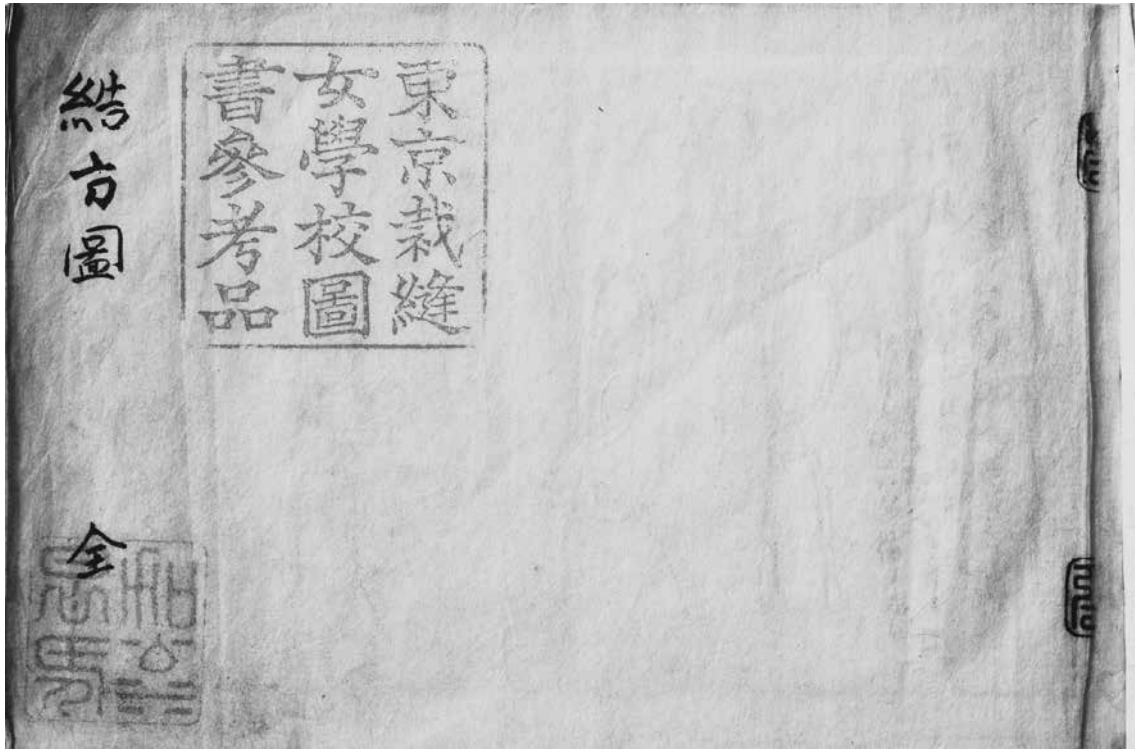 東京裁縫
女學校圖
書參考品
結方圖
全